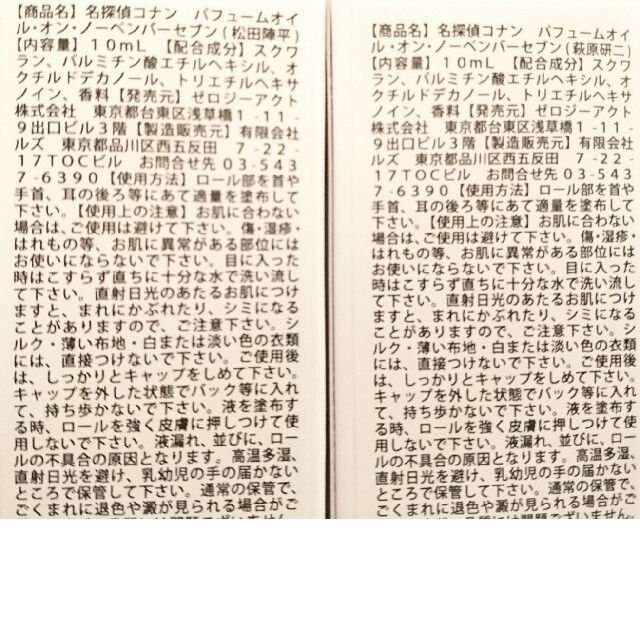 【商品名】名探偵コナン　パフュームオイ
ル・オン・ノーベンバーセブン(松田陣平)
【内容量】10mL　【配合成分】スクワ
ラン、パルミチン酸エチルヘキシル、オ
クチルドデカノール、トリエチルヘキサ
ノイン、香料【発売元】ゼロジーアクト
株式会社　東京都台東区浅草橋1-11-
9出口ビル3階【製造販売元】有限会社
ルズ　東京都品川区西五反田　7-22-
17TOCビル　お問合せ先 03-543
7-6390【使用方法】ロール部を首や
手首、耳の後ろ等にあて適量を塗布して
下さい。【使用上の注意】お肌に合わない
場合は、ご使用は避けて下さい。傷・湿疹・
はれもの等、お肌に異常がある部位には
お使いにならないで下さい。目に入った
時はこすらず直ちに十分な水で洗い流し
て下さい。直射日光のあたるお肌につけ
ますと、まれにかぶれたり、シミになる
ことがありますので、ご注意下さい。シ
ルク・薄い布地・白または淡い色の衣類
には、直接つけないで下さい。ご使用後
は、しっかりとキャップをしめて下さい。
キャップを外した状態でバック等に入れ
て、持ち歩かないで下さい。液を塗布す
る時、ロールを強く皮膚に押しつけて使
用しないで下さい。液漏れ、並びに、ロー
ルの不具合の原因となります。高温多湿、
直射日光を避け、乳幼児の手の届かない
ところで保管して下さい。通常の保管で、
ごくまれに退色や澱が見られる場合がご
【商品名】名探偵コナン　パフュームオイ
ル・オン・ノーベンバーセブン(萩原研二)
【内容量】10mL　【配合成分】スクワ
ラン、パルミチン酸エチルヘキシル、オ
クチルドデカノール、トリエチルヘキサ
ノイン、香料【発売元】ゼロジーアクト
株式会社　東京都台東区浅草橋1-11-
9出口ビル3階【製造販売元】有限会社
ルズ　東京都品川区西五反田　7-22-
17TOCビル　お問合せ先 03-543
7-6390【使用方法】ロール部を首や
手首、耳の後ろ等にあて適量を塗布して
下さい。【使用上の注意】お肌に合わない
場合は、ご使用は避けて下さい。傷・湿疹・
はれもの等、お肌に異常がある部位には
お使いにならないで下さい。目に入った
時はこすらず直ちに十分な水で洗い流し
て下さい。直射日光のあたるお肌につけ
ますと、まれにかぶれたり、シミになる
ことがありますので、ご注意下さい。シ
ルク・薄い布地・白または淡い色の衣類
には、直接つけないで下さい。ご使用後
は、しっかりとキャップをしめて下さい。
キャップを外した状態でバック等に入れ
て、持ち歩かないで下さい。液を塗布す
る時、ロールを強く皮膚に押しつけて使
用しないで下さい。液漏れ、並びに、ロー
ルの不具合の原因となります。高温多湿、
直射日光を避け、乳幼児の手の届かない
ところで保管して下さい。通常の保管で、
ごくまれに退色や澱が見られる場合がご